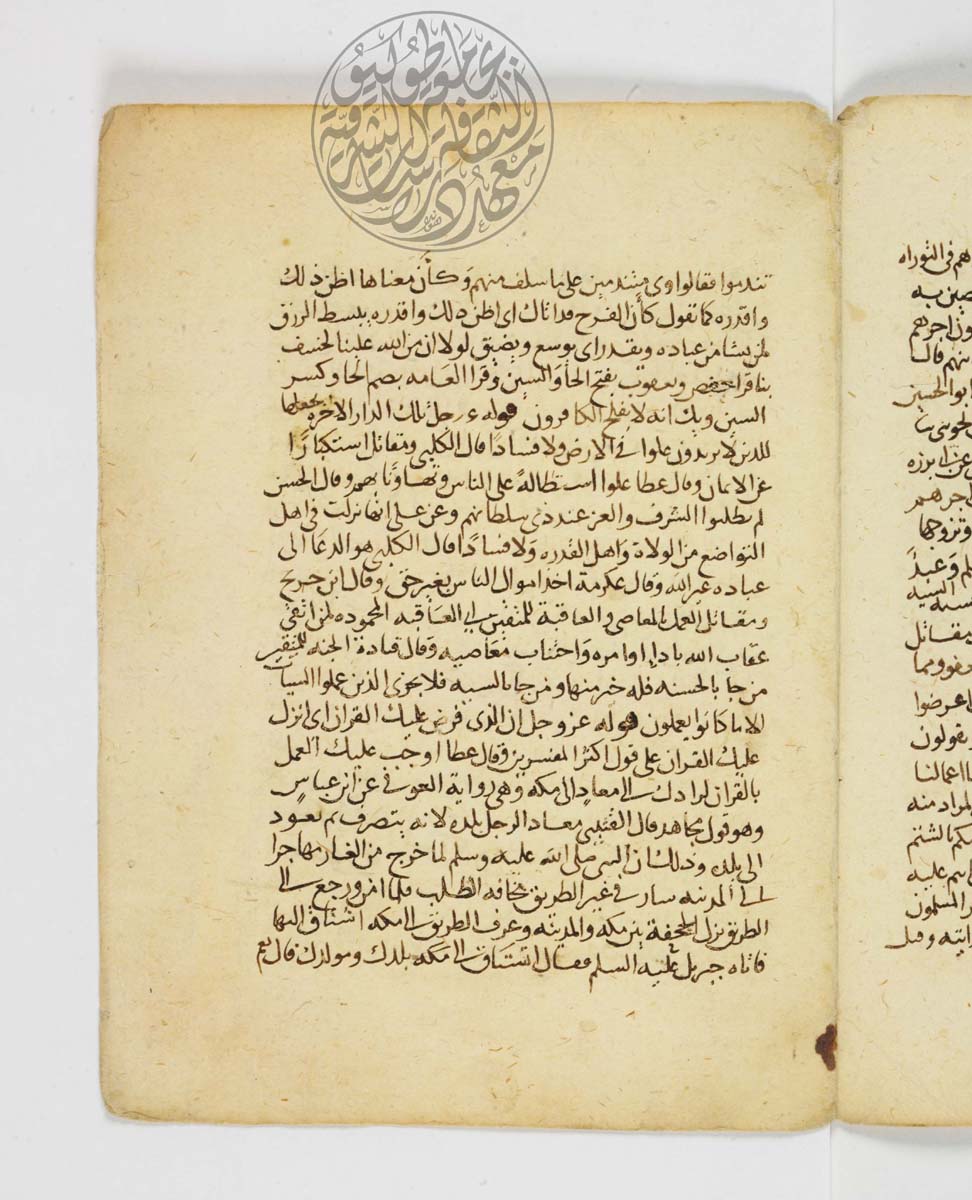 تندموا فقالوا وى متندمين على ما سلف منهم وكأن معناها اظن ذلك
واقدره كما تقول كأن الفرح قد اتاك اى اظن ذلك واقدره يبسط الرزق
لمن يشا من عباده ويقدر اى يوسع ويضيق لولا ان من الله علينا لخسف
بنا قرا حفص ويعقوب بفتح الخا والسين وقرا العامه بضم الخا وكسر
السين ويك انه لا يفلح الكافرون قوله عز وجل تلك الدار الاخرة نجعلها
للذين لا يريدون علوا فى الارض ولا فسادا قال الكلبى ومقاتل استكبارا
عن الايمان وقال عطا علوا استطالة على الناس وتهاونا بهم وقال الحسن
لم يطلبوا الشرف والعز عند ذى سلطانهم وعن على انها نزلت فى اهل
التواضع من الولاة واهل القدره ولا فسادا قال الكلبى هو الدعا الى
عباده غير الله وقال عكرمة اخذ اموال الناس بغير حق وقال ابن جريج
ومقاتل العمل بالمعاصى والعاقبة للمتقين اى العاقبه المحموده لمن اتقى
عقاب الله بادا اوامره واجتناب معاصيه وقال قتادة الجنه للمتقين
من جا بالحسنه فله خير منها ومن جا بالسيه فلا يجزى الذين عملوا السيات
الا ما كانوا يعملون قوله عز وجل ان الذى فرض عليك القران اى انزل
عليك القران على قول اكثر المفسرين وقال عطا اوجب عليك العمل
بالقران لرادك الى معاد الى مكه وهى رواية العوفى عن ابن عباس
وهو قول مجاهد قال القتيبى معاد الرجل بلده لانه يتصرف ثم يعود
الى بلده وذلك ان النبى صلى الله عليه وسلم لما خرج من الغار مهاجرا
الى المدينه سار فى غير الطريق مخافه الطلب فلما امن ورجع الى
الطريق نزل الجحفة بين مكه والمدينه وعرف الطريق الى مكه اشتاق اليها
فاتاه جبريل عليه السلم فقال اتشتاق الى مكه بلدك ومولدك قال نعم
هم فى التوراه
اجرهم
منهم قالا
ابو الحسين
وتزوجها
مقاتل
يقولون
اعمالنا
المراد منه
عليه
المسلمون
جامعة طوكيو
معهد دراسات الثقافة الشرقية